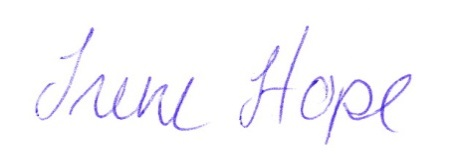 Irene Hope